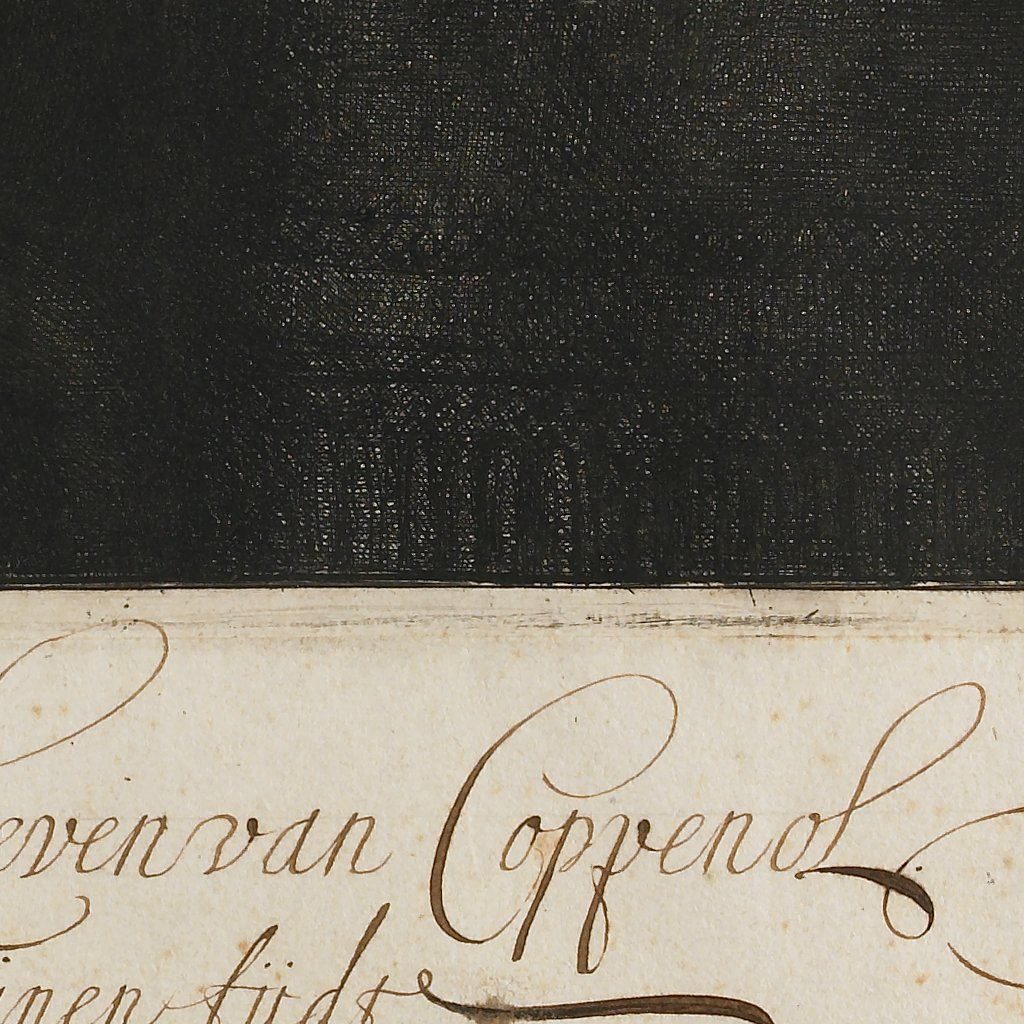 even van Coppenol
inen tijdt